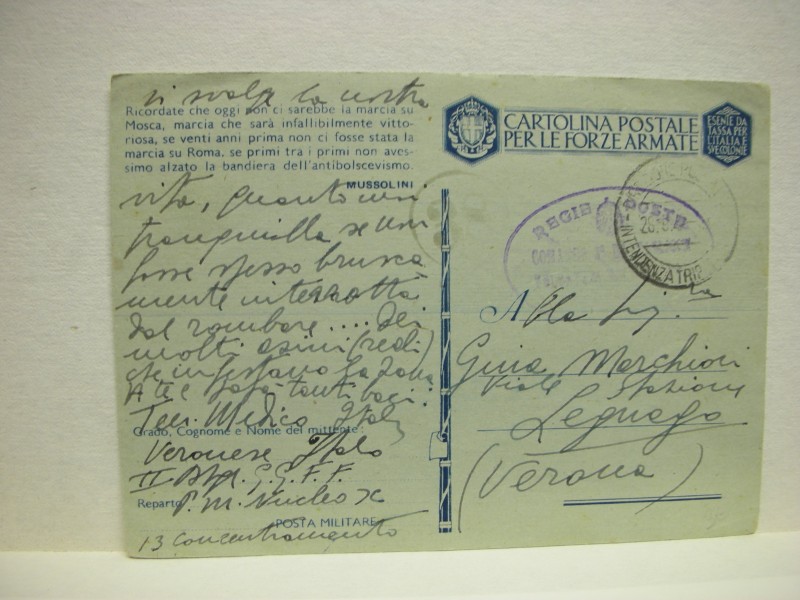 si svolge la nostra
Ricordate che oggi non ci sarebbe la marcia su
Mosca, marcia che sarà infallibilmente vitto-
riosa, se venti anni prima non ci fosse stata la
marcia su Roma. se primi tra i primi non aves-
simo alzato la bandiera dell'antibolscevismo.
MUSSOLINI
vita, quanto mai
tranquilla se non
fosse spesso brusca
mente interrotta
dal rombare .... dei
molti asini (redi)
che infestano la zona
A te e papà tanti baci.
Ten. Medico Italo
Grado, Cognome e Nome del mittente:
Veronese Italo
II Btg. G.G.F.F.
Reparto P. M. Nucleo X
POSTA MILITARE
13 Concentramento
CARTOLINA POSTALE
PER LE FORZE ARMATE
ESENTE DA
TASSA PER
L'ITALIA E
SVE COLONIE
REGIE POSTE
INTENDENZA TRI
Alla Sig.na
Gina Marchiori
Viale Stazione
Legnago
(Verona)